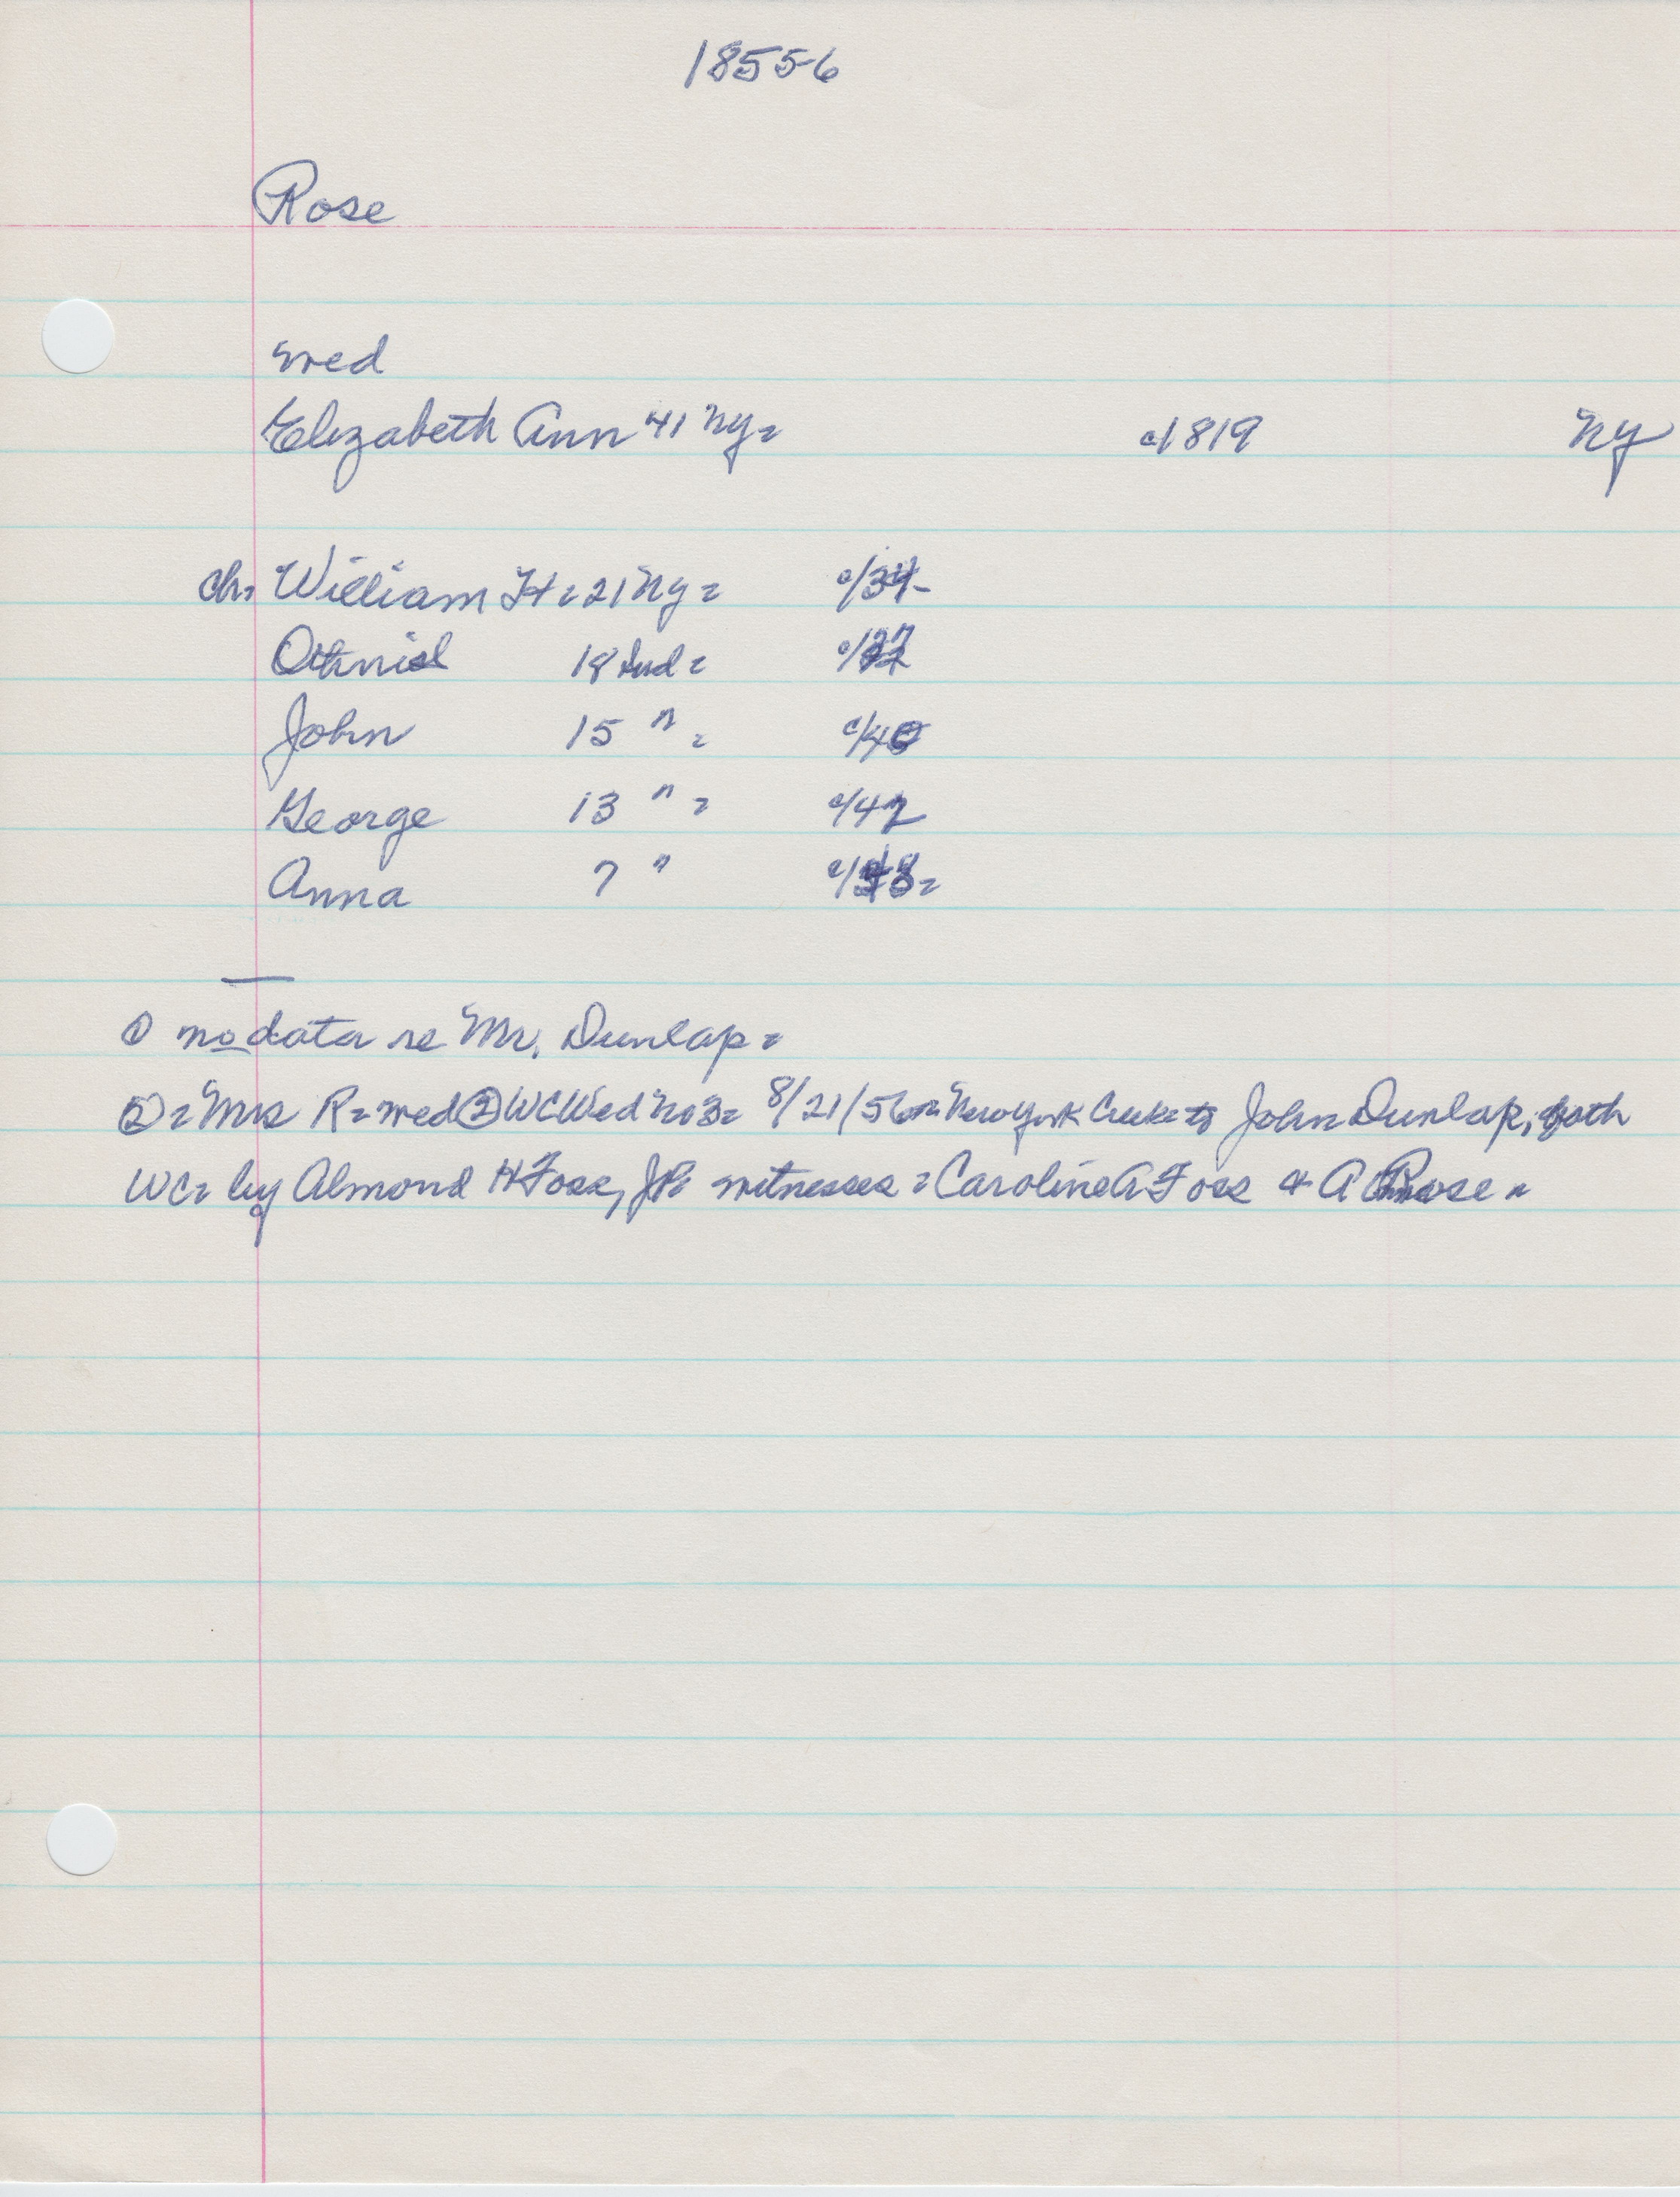 1855-6
Rose
med
Elizabeth Ann 41 NY= c/1819 NY
ch= William H= 21 NY= c/34-
Othniel 18 Ind= c/37
John 15 " = c/40
George 13 " = c/42
Anna 7 " c/48=
① no data re Mr. Dunlap=
②= Mrs R= med ② WCWed No3= 8/21/56 on New York Creek to John Dunlap, both
WC= by Almond H Foss, JP= witnesses = Caroline A Foss & A Rose=